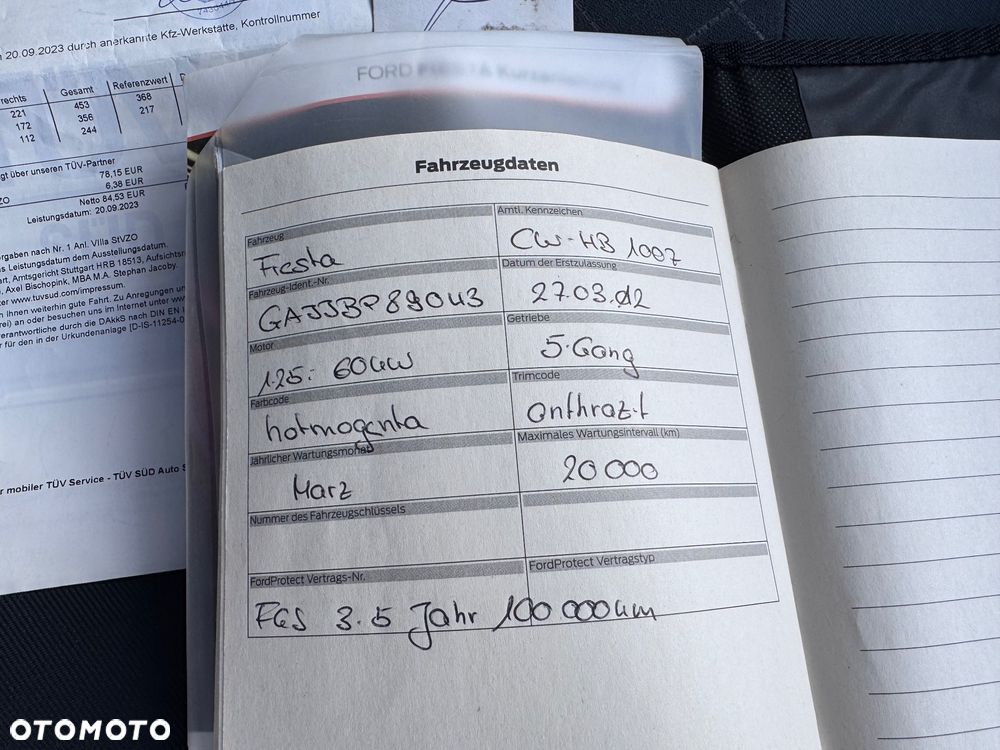 20.09.2023 durch anerkannte Kfz-Werkstätte, Kontrollnummer
rechts Gesamt Referenzwert
221 453 368
172 356 217
112 244
gt über unseren TÜV-Partner
78,15 EUR
6,38 EUR
ZO Netto 84,53 EUR
Leistungsdatum: 20.09.2023
orgaben nach Nr. 1 Anl. VIIIa StVZO
s Leistungsdatum dem Ausstellungsdatum.
art, Amtsgericht Stuttgart HRB 18513, Aufsichtsr
Axel Bischopink, MBA M.A. Stephan Jacoby.
er www.tuvsud.com/impressum.
n Ihnen weiterhin gute Fahrt. Zu Anregungen u
rei) an oder besuchen uns im Internet unter ww
erantwortliche durch die DAkkS nach DIN EN I
für den in der Urkundenanlage [D-IS-11254-0
r mobiler TÜV Service - TÜV SÜD Auto S
FORD FIESTA
Fahrzeugdaten
Fahrzeug Amtl. Kennzeichen
Fiesta CUX-HB 1007
Fahrzeug-Ident.-Nr. Datum der Erstzulassung
GAJJBP89043 27.03.012
Motor Getriebe
1.25: 60kW 5-Gang
Farbcode Trimcode
hotmagenta anthrazit
Jährlicher Wartungsmonat Maximales Wartungsintervall (km)
März 20 000
Nummer des Fahrzeugschlüssels
FordProtect Vertrags-Nr. FordProtect Vertragstyp
FGS 3.5 Jahr 100 000km
OTOMOTO